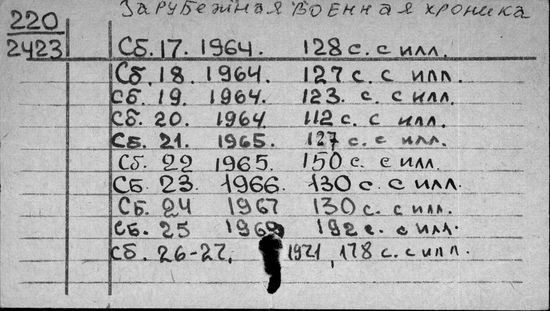 Зарубежная военная хроника
220
2423
Сб. 17. 1964. 128 с. с илл.
Сб. 18. 1964. 127 с. с илл.
Сб. 19. 1964. 123. с. с илл.
Сб. 20. 1964 112 с. с илл.
Сб. 21. 1965. 127 с. с илл.
Сб. 22 1965. 150 с. с илл.
Сб. 23. 1966. 130 с. с илл.
Сб. 24 1967 130 с. с илл.
Сб. 25 1969 192 с. с илл.
Сб. 26-27, 1971, 178 с. с илл.